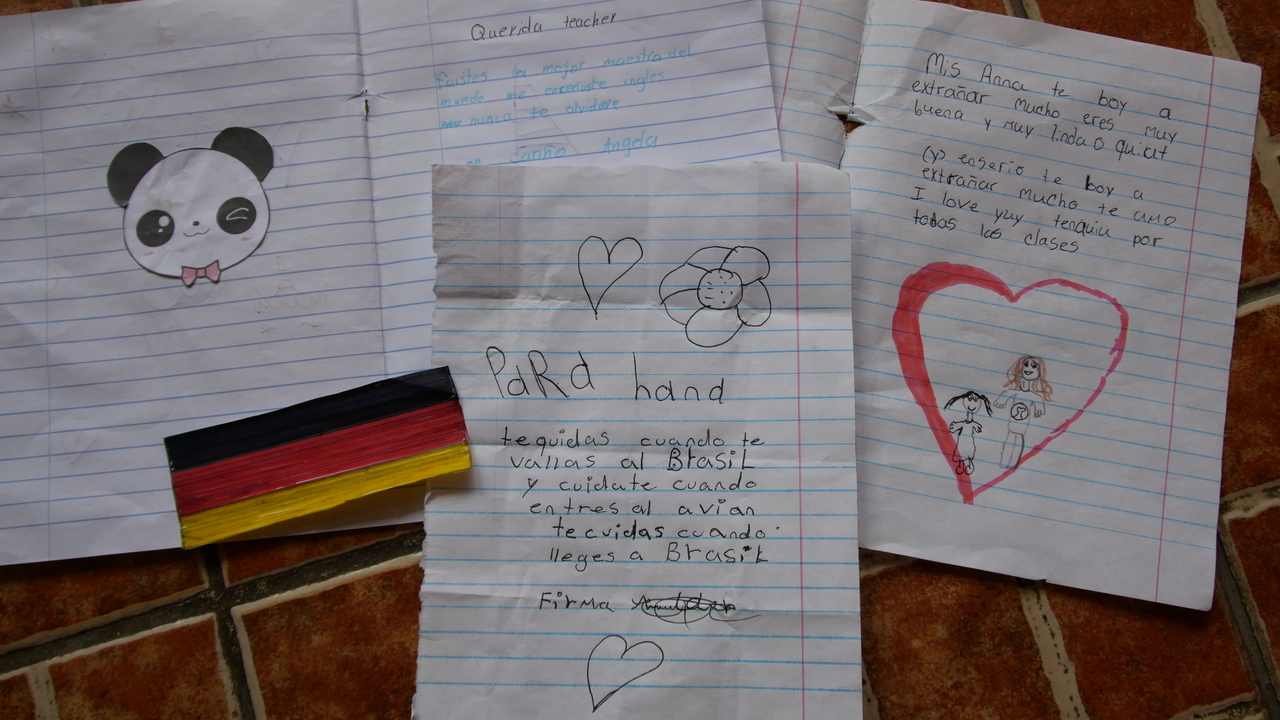 Querida teacher
fuistes la mejor maestra del
mundo me enseñaste ingles
nunca te olvidare
Angela
PaRa hand
te quidas cuando te
vallas al BrasiL
y cuidate cuando
entres al avian
te cuidas cuando
lleges a BrasiL
Firma
Mis Anna te boy a
extrañar mucho eres muy
buena y muy linda O quiat
(y) enserio te boy a
extrañar mucho te amo
I love yuy tenquiu por
todas las clases